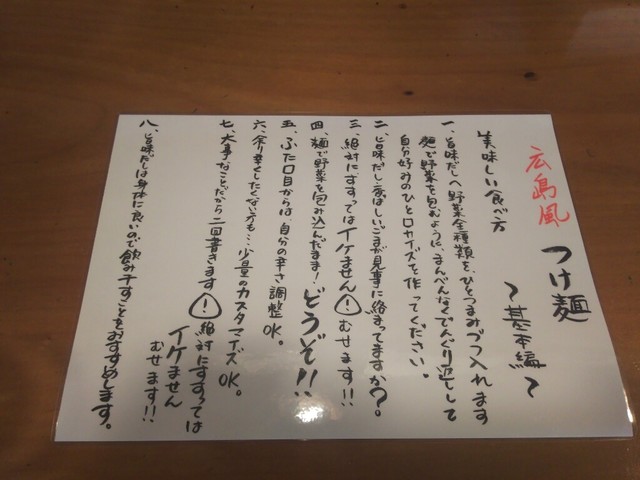 広島風 つけ麺
〜基本編〜
美味しい食べ方
一、旨味だしへ野菜全種類を、ひとつまみづつ入れます
麺で野菜を包むように、まんべんなくでんぐり返しして
自分好みのひと口サイズを作ってください。
二、旨味だし・香ばしいごまが見事に絡まってますか?。
三、絶対にすすってはイケません! むせます!!
四、麺で野菜を包み込んだまま! どうぞ!!
五、ふた口目からは、自分の辛さ調整OK。
六、余り辛くしたくない方も…少量のカスタマイズOK。
七、大事なことだから二回書きます! 絶対にすすっては
イケません
むせます!!
八、旨味だしは身体に良いので飲み干すことをおすすめします。